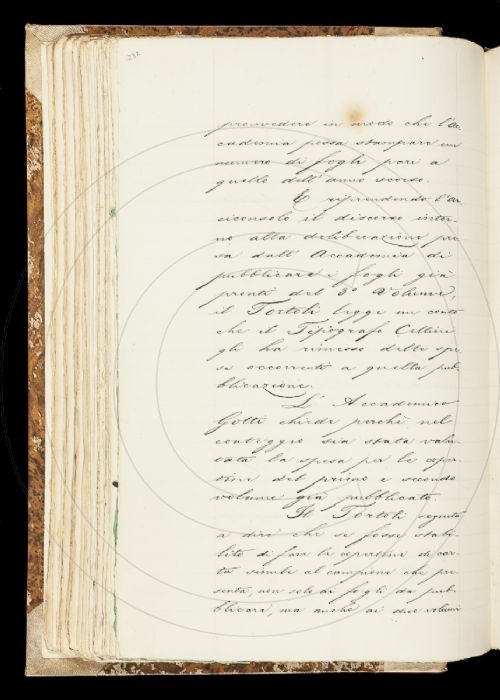 232
provvedere in modo che l'Ac-
cademia possa stampare un
numero di fogli pari a
quello dell'anno scorso.
E riprendendo l'Ar-
ciconsolo il discorso intor-
no alla deliberazione pre-
sa dall'Accademia di
pubblicare i fogli già
pronti del 5º Volume,
il Tortoli legge un conto
che il Tipografo Cellini
gli ha rimesso delle spe-
se occorrenti a quella pub-
blicazione.
L'Accademico
Gotti chiede perchè nel
conteggio sia stata valu-
tata la spesa per le coper-
tine del primo e secondo
volume già pubblicato.
Il Tortoli seguita
a dire che se fosse stabi-
lito di fare le copertine di car-
ta simile al campione che pre-
senta, non solo ai fogli da pub-
blicare, ma anche ai due volumi